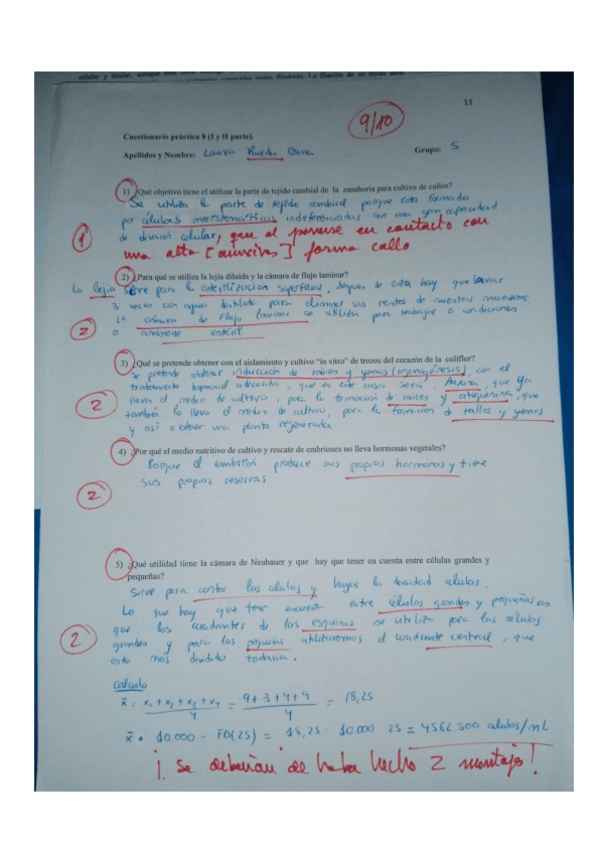 11
9/10
Cuestionario práctica 8 (I y II parte).
Apellidos y Nombre: Laura Rueda Grupo: 5
1) ¿Qué objetivo tiene el utilizar la parte de tejido cambial de la zanahoria para cultivo de callos?
Se utiliza la parte de tejido cambial porque esta formado
por células meristematicas indeferenciadas con una gran capacidad
de división celular, que al ponerse en contacto con
una alta [auxinas] forma callo
1
2) ¿Para qué se utiliza la lejía diluida y la cámara de flujo laminar?
La lejia sirve para la esterilizacion superficial, despues de esta hay que lavar
3 veces con agua destilada para eliminar sus restos de nuestras muestras
La camara de flujo laminar se utiliza para trabajar a condiciones
o ambiente esteril
2
3) ¿Qué se pretende obtener con el aislamiento y cultivo "in vitro" de trozos del corazón de la coliflor?
Se pretende obtener inducción de raices y yemas (organogénesis), con el
tratamiento hormonal adecuado, que en este caso sera, Auxina, que ya
lleva el medio de cultivo, para la formación de raices y citoquinina, que
también lo lleva el medio de cultivo, para la formacion de tallos y yemas
y así obtener una planta regenerada
2
4) ¿Por qué el medio nutritivo de cultivo y rescate de embriones no lleva hormonas vegetales?
Porque el embrión produce sus propias hormonas y tiene
sus propias reservas
2
5) ¿Qué utilidad tiene la cámara de Neubauer y que hay que tener en cuenta entre células grandes y
pequeñas?
Sirve para contar las celulas y hayar la densidad celular.
Lo que hay que tener encuenta entre células grandes y pequeñas es
que los cuadrantes de las esquinas se utiliza para las celulas
grandes y para las pequeñas utilizaremos el cuadrante central, que
esta mas dividido todavia.
2
Calculo
x̄ = x₁+x₂+x₃+x₄ / 4 = 9+3+4+9 / 4 = 18,25
x̄ · 10.000 · FD(25) = 18,25 · 10.000 · 25 = 4562.500 celulas/mL
¡Se deberían de haber hecho 2 montajes!